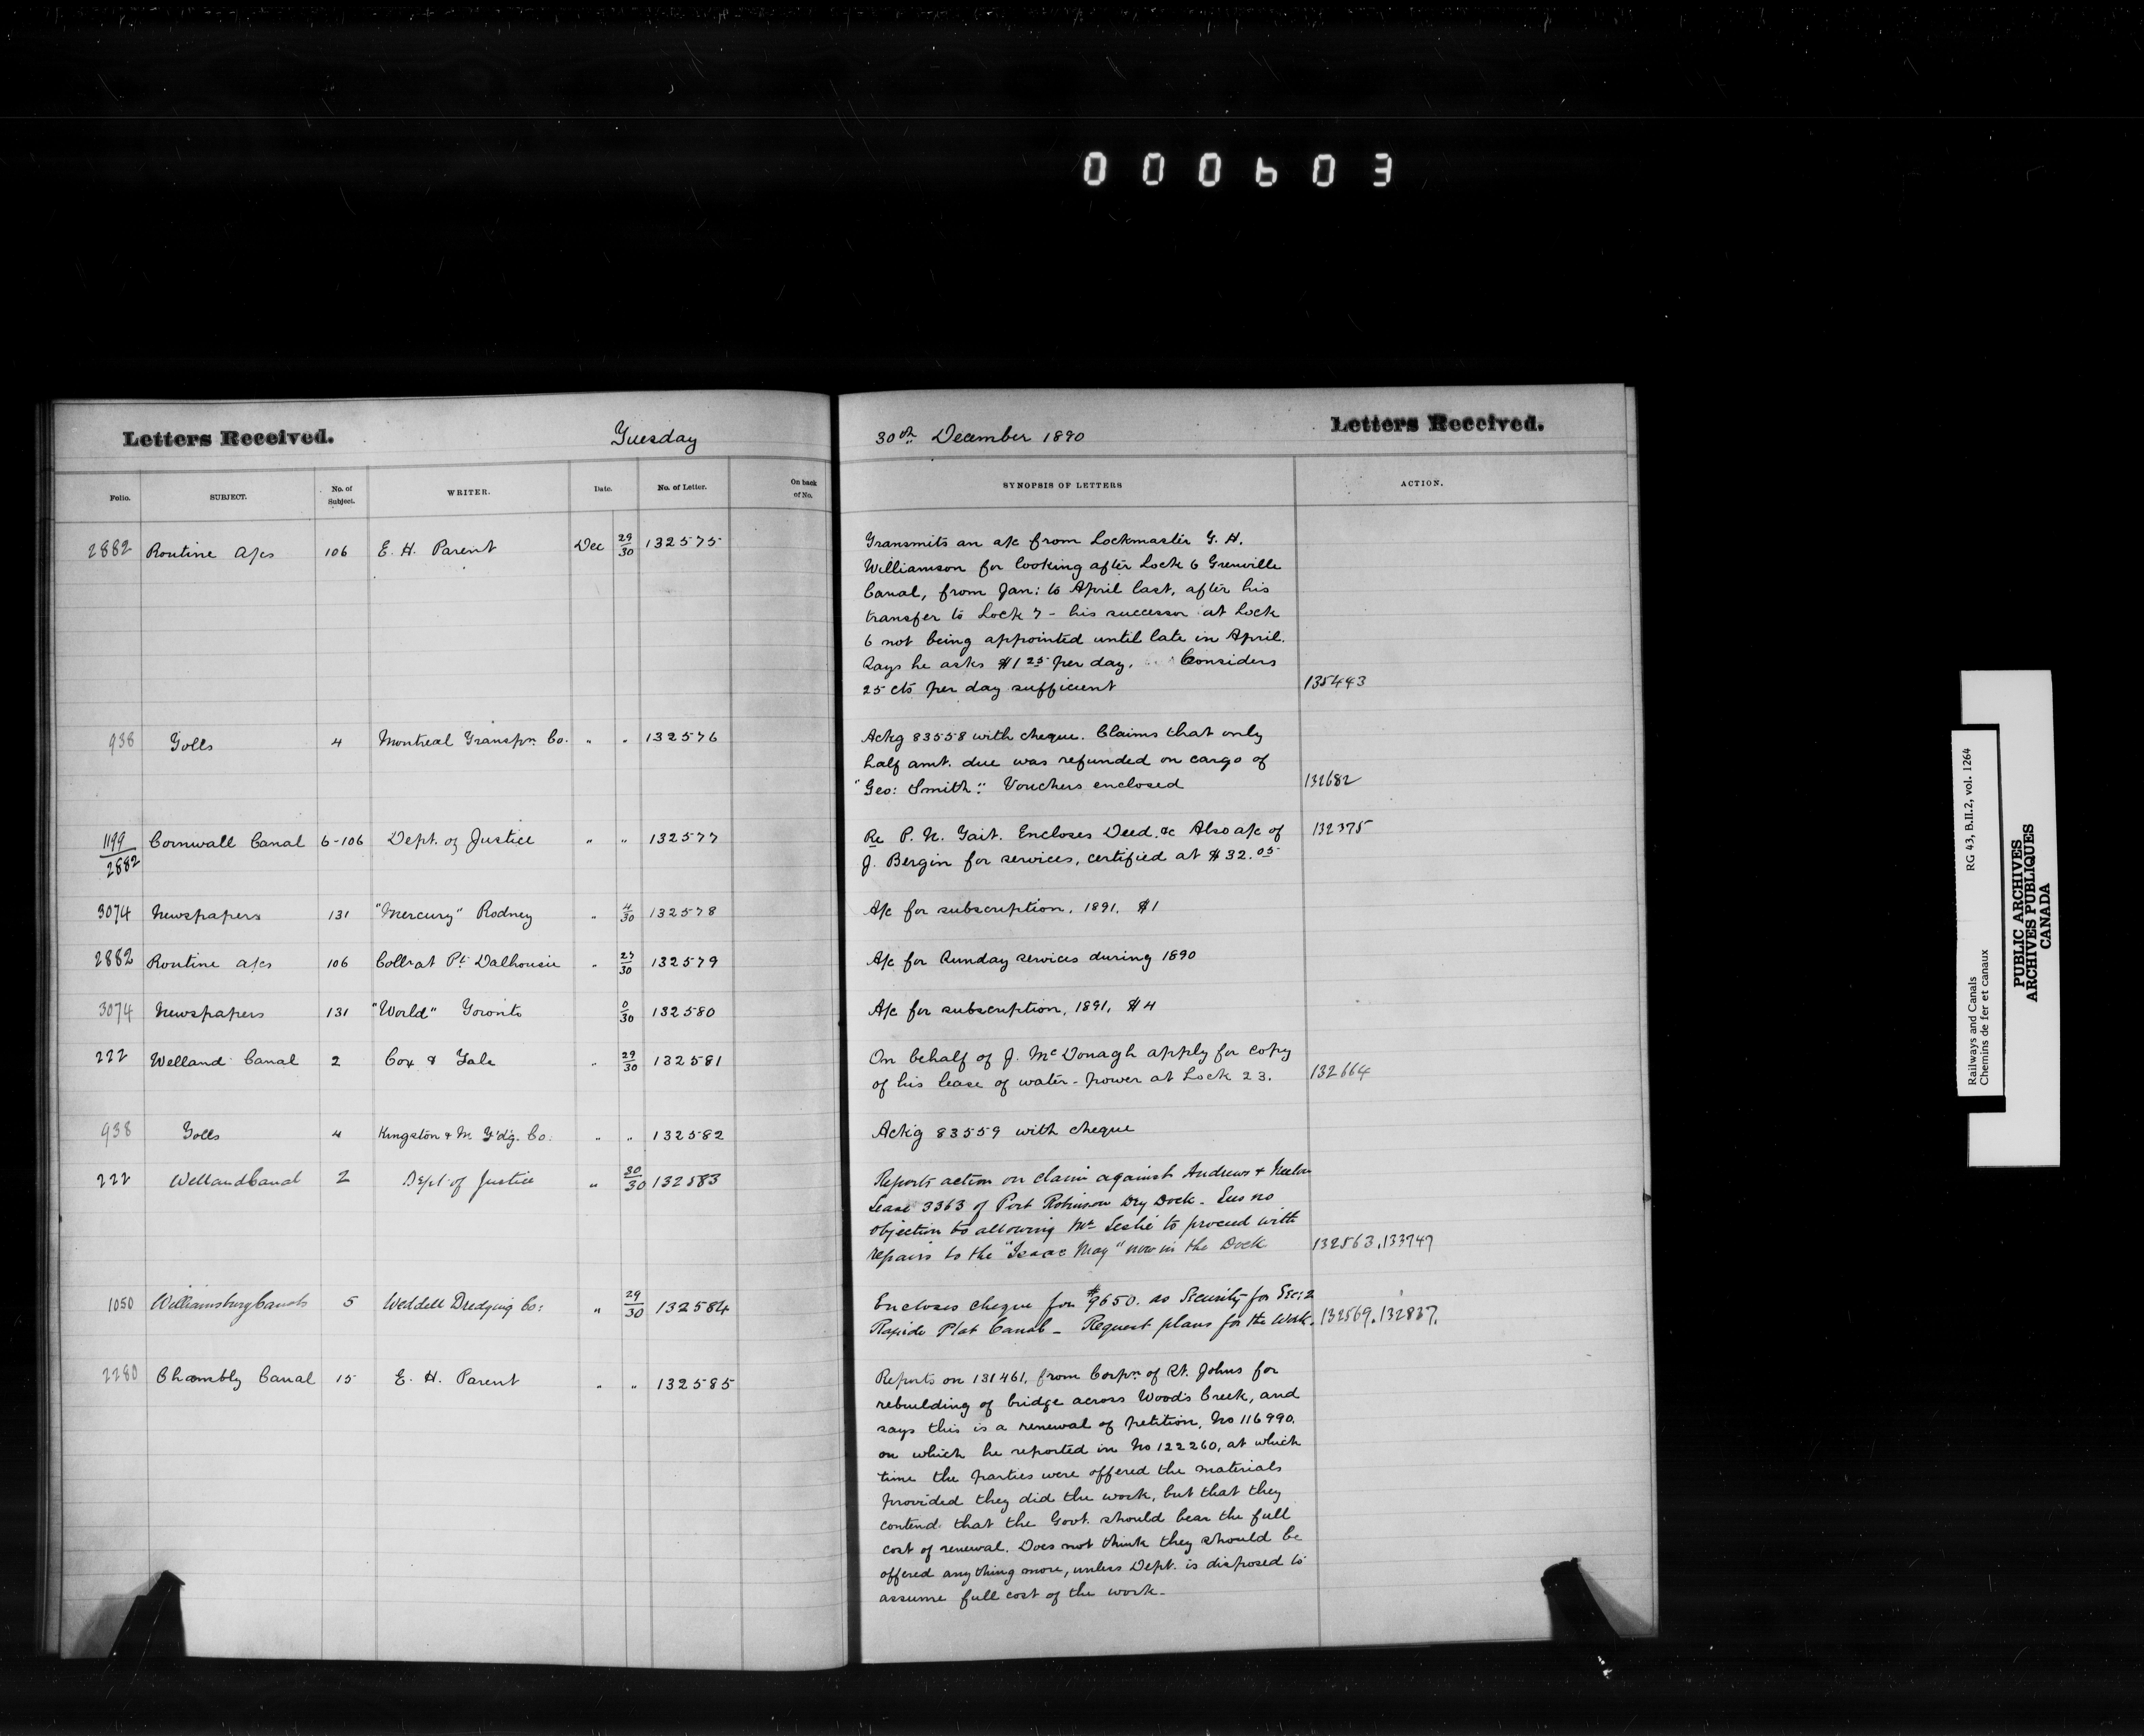 000603
Letters Received.
Tuesday
30th December 1890
Letters Received.
Folio.
SUBJECT.
No. of Subject.
WRITER.
Date.
No. of Letter.
On back of No.
SYNOPSIS OF LETTERS
ACTION.
2882 Routine a/cs 106 E. H. Parent Dec 29/30 132575
Transmits an a/c from Lockmaster G. H.
Williamson for looking after Lock 6 Grenville
Canal, from Jan: to April last, after his
transfer to Lock 7 - his successor at Lock
6 not being appointed until late in April.
Says he asks $1 25 per day. Considers
25 cts per day sufficient 135443
938 Tolls 4 Montreal Transpn. Co. " " 132576
Ackg 83558 with cheque. Claims that only
half amt. due was refunded on cargo of
"Geo: Smith". Vouchers enclosed 132682
1199/2882 Cornwall Canal 6-106 Dept. of Justice " " 132577
Re P. N. Tait. Encloses Deed. &c Also a/c of 132375
J. Bergin for services, certified at $32.05
3074 Newspapers 131 "Mercury" Rodney " 4/30 132578
A/c for subscription, 1891, $1
2882 Routine a/cs 106 Collr at Pt. Dalhousie " 27/30 132579
A/c for Sunday services during 1890
3074 Newspapers 131 "World" Toronto 0/30 132580
A/c for subscription, 1891, $4
222 Welland Canal 2 Cox & Yale " 29/30 132581
On behalf of J. McDonagh apply for copy
of his lease of water-power at Lock 23. 132664
938 Tolls 4 Kingston & M. F'd'g. Co. " " 132582
Ackig 83559 with cheque
222 Welland Canal 2 Dept of Justice " 30/30 132583
Reports action on claim against Andrews &
Lease 3363 of Port Robinson Dry Dock - Sees no
objection to allowing Mr Leslie to proceed with
repairs to the "Isaac May" now in the Dock 132563.133747
1050 Williamsburg Canals 5 Weddell Dredging Co: " 29/30 132584
Encloses cheque for $9650. as Security for Sec: 2
Rapide Plat Canal - Request plans for the Work. 132569.132837.
2280 Chambly Canal 15 E. H. Parent " " 132585
Reports on 131461, from Corpn. of St. Johns for
rebuilding of bridge across Wood's Creek, and
says this is a renewal of petition, No 116990.
on which he reported in No 122260, at which
time the parties were offered the materials
provided they did the work, but that they
contend that the Govt. should bear the full
cost of renewal. Does not think they should be
offered anything more, unless Dept. is disposed to
assume full cost of the work.
Railways and Canals RG 43, B.II.2, vol. 1264
Chemins de fer et canaux
PUBLIC ARCHIVES
ARCHIVES PUBLIQUES
CANADA